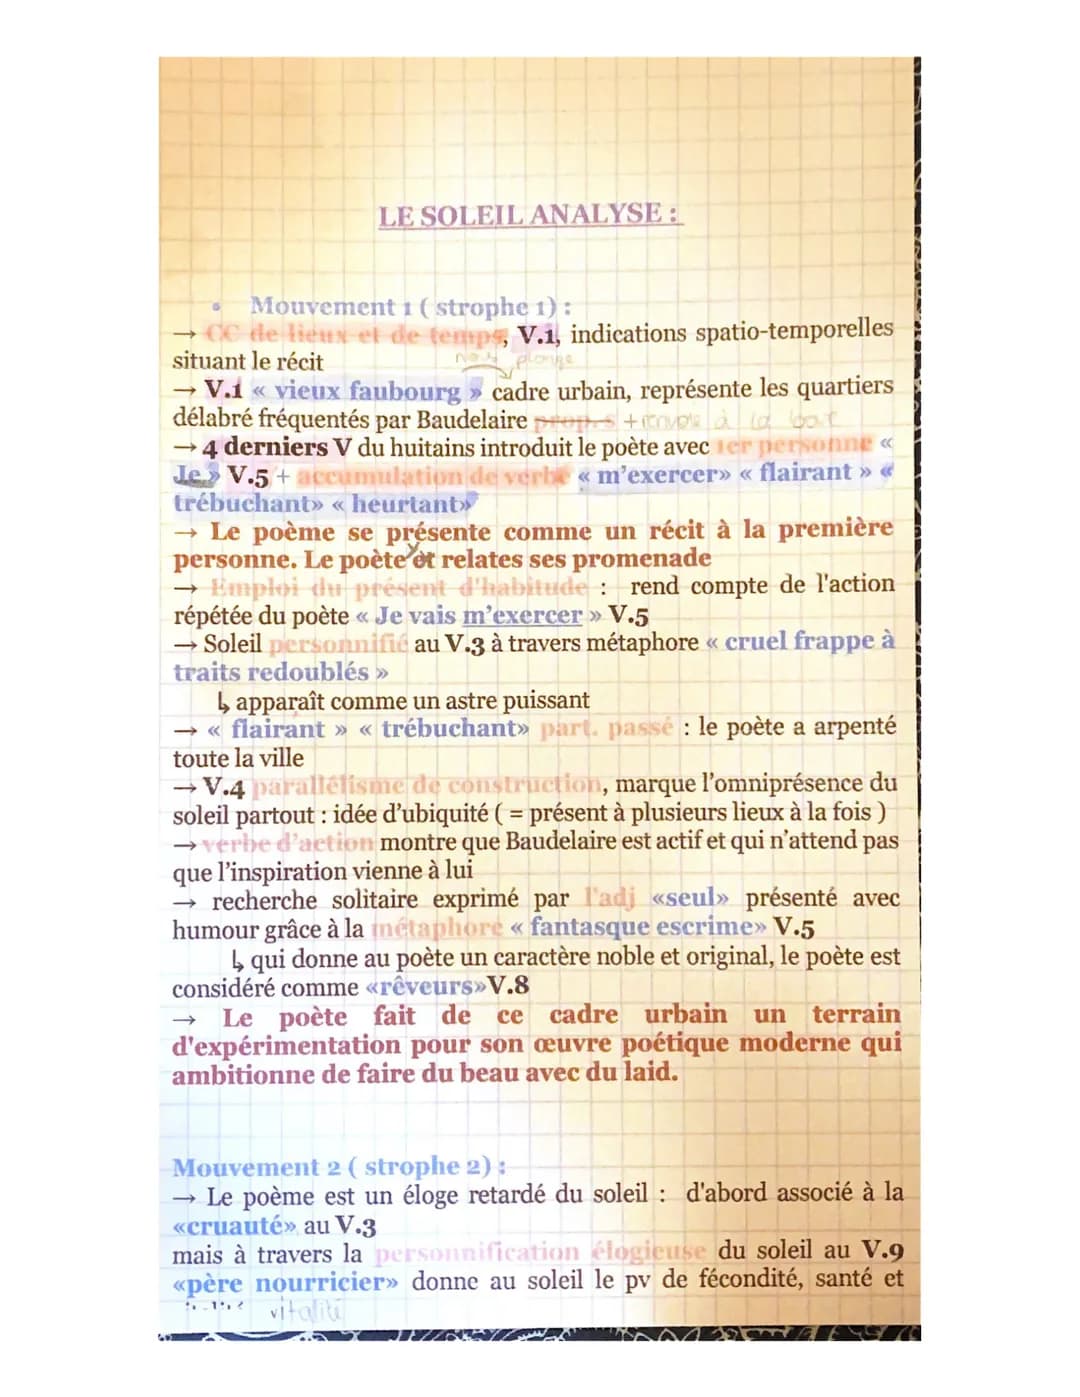 LE SOLEIL ANALYSE :
• Mouvement 1 ( strophe 1) :
→ CC de lieux et de temps, V.1, indications spatio-temporelles
situant le récit
nous plonge
→ V.1 « vieux faubourg » cadre urbain, représente les quartiers
délabré fréquentés par Baudelaire + à la
→ 4 derniers V du huitains introduit le poète avec 1er personne «
Je » V.5 + accumulation de verbe « m'exercer» « flairant » «
trébuchant» « heurtant»
→ Le poème se présente comme un récit à la première
personne. Le poète relates ses promenade
→ Emploi du présent d'habitude : rend compte de l'action
répétée du poète « Je vais m'exercer » V.5
→ Soleil personnifié au V.3 à travers métaphore « cruel frappe à
traits redoublés »
↳ apparaît comme un astre puissant
→ « flairant » « trébuchant» part. passé : le poète a arpenté
toute la ville
→ V.4 parallélisme de construction, marque l'omniprésence du
soleil partout : idée d'ubiquité ( = présent à plusieurs lieux à la fois )
→ verbe d'action montre que Baudelaire est actif et qui n'attend pas
que l'inspiration vienne à lui
→ recherche solitaire exprimé par l'adj «seul» présenté avec
humour grâce à la métaphore « fantasque escrime» V.5
↳ qui donne au poète un caractère noble et original, le poète est
considéré comme «rêveurs»V.8
→ Le poète fait de ce cadre urbain un terrain
d'expérimentation pour son œuvre poétique moderne qui
ambitionne de faire du beau avec du laid.
Mouvement 2 ( strophe 2) :
→ Le poème est un éloge retardé du soleil : d'abord associé à la
«cruauté» au V.3
mais à travers la personnification élogieuse du soleil au V.9
«père nourricier» donne au soleil le pv de fécondité, santé et
vitalité